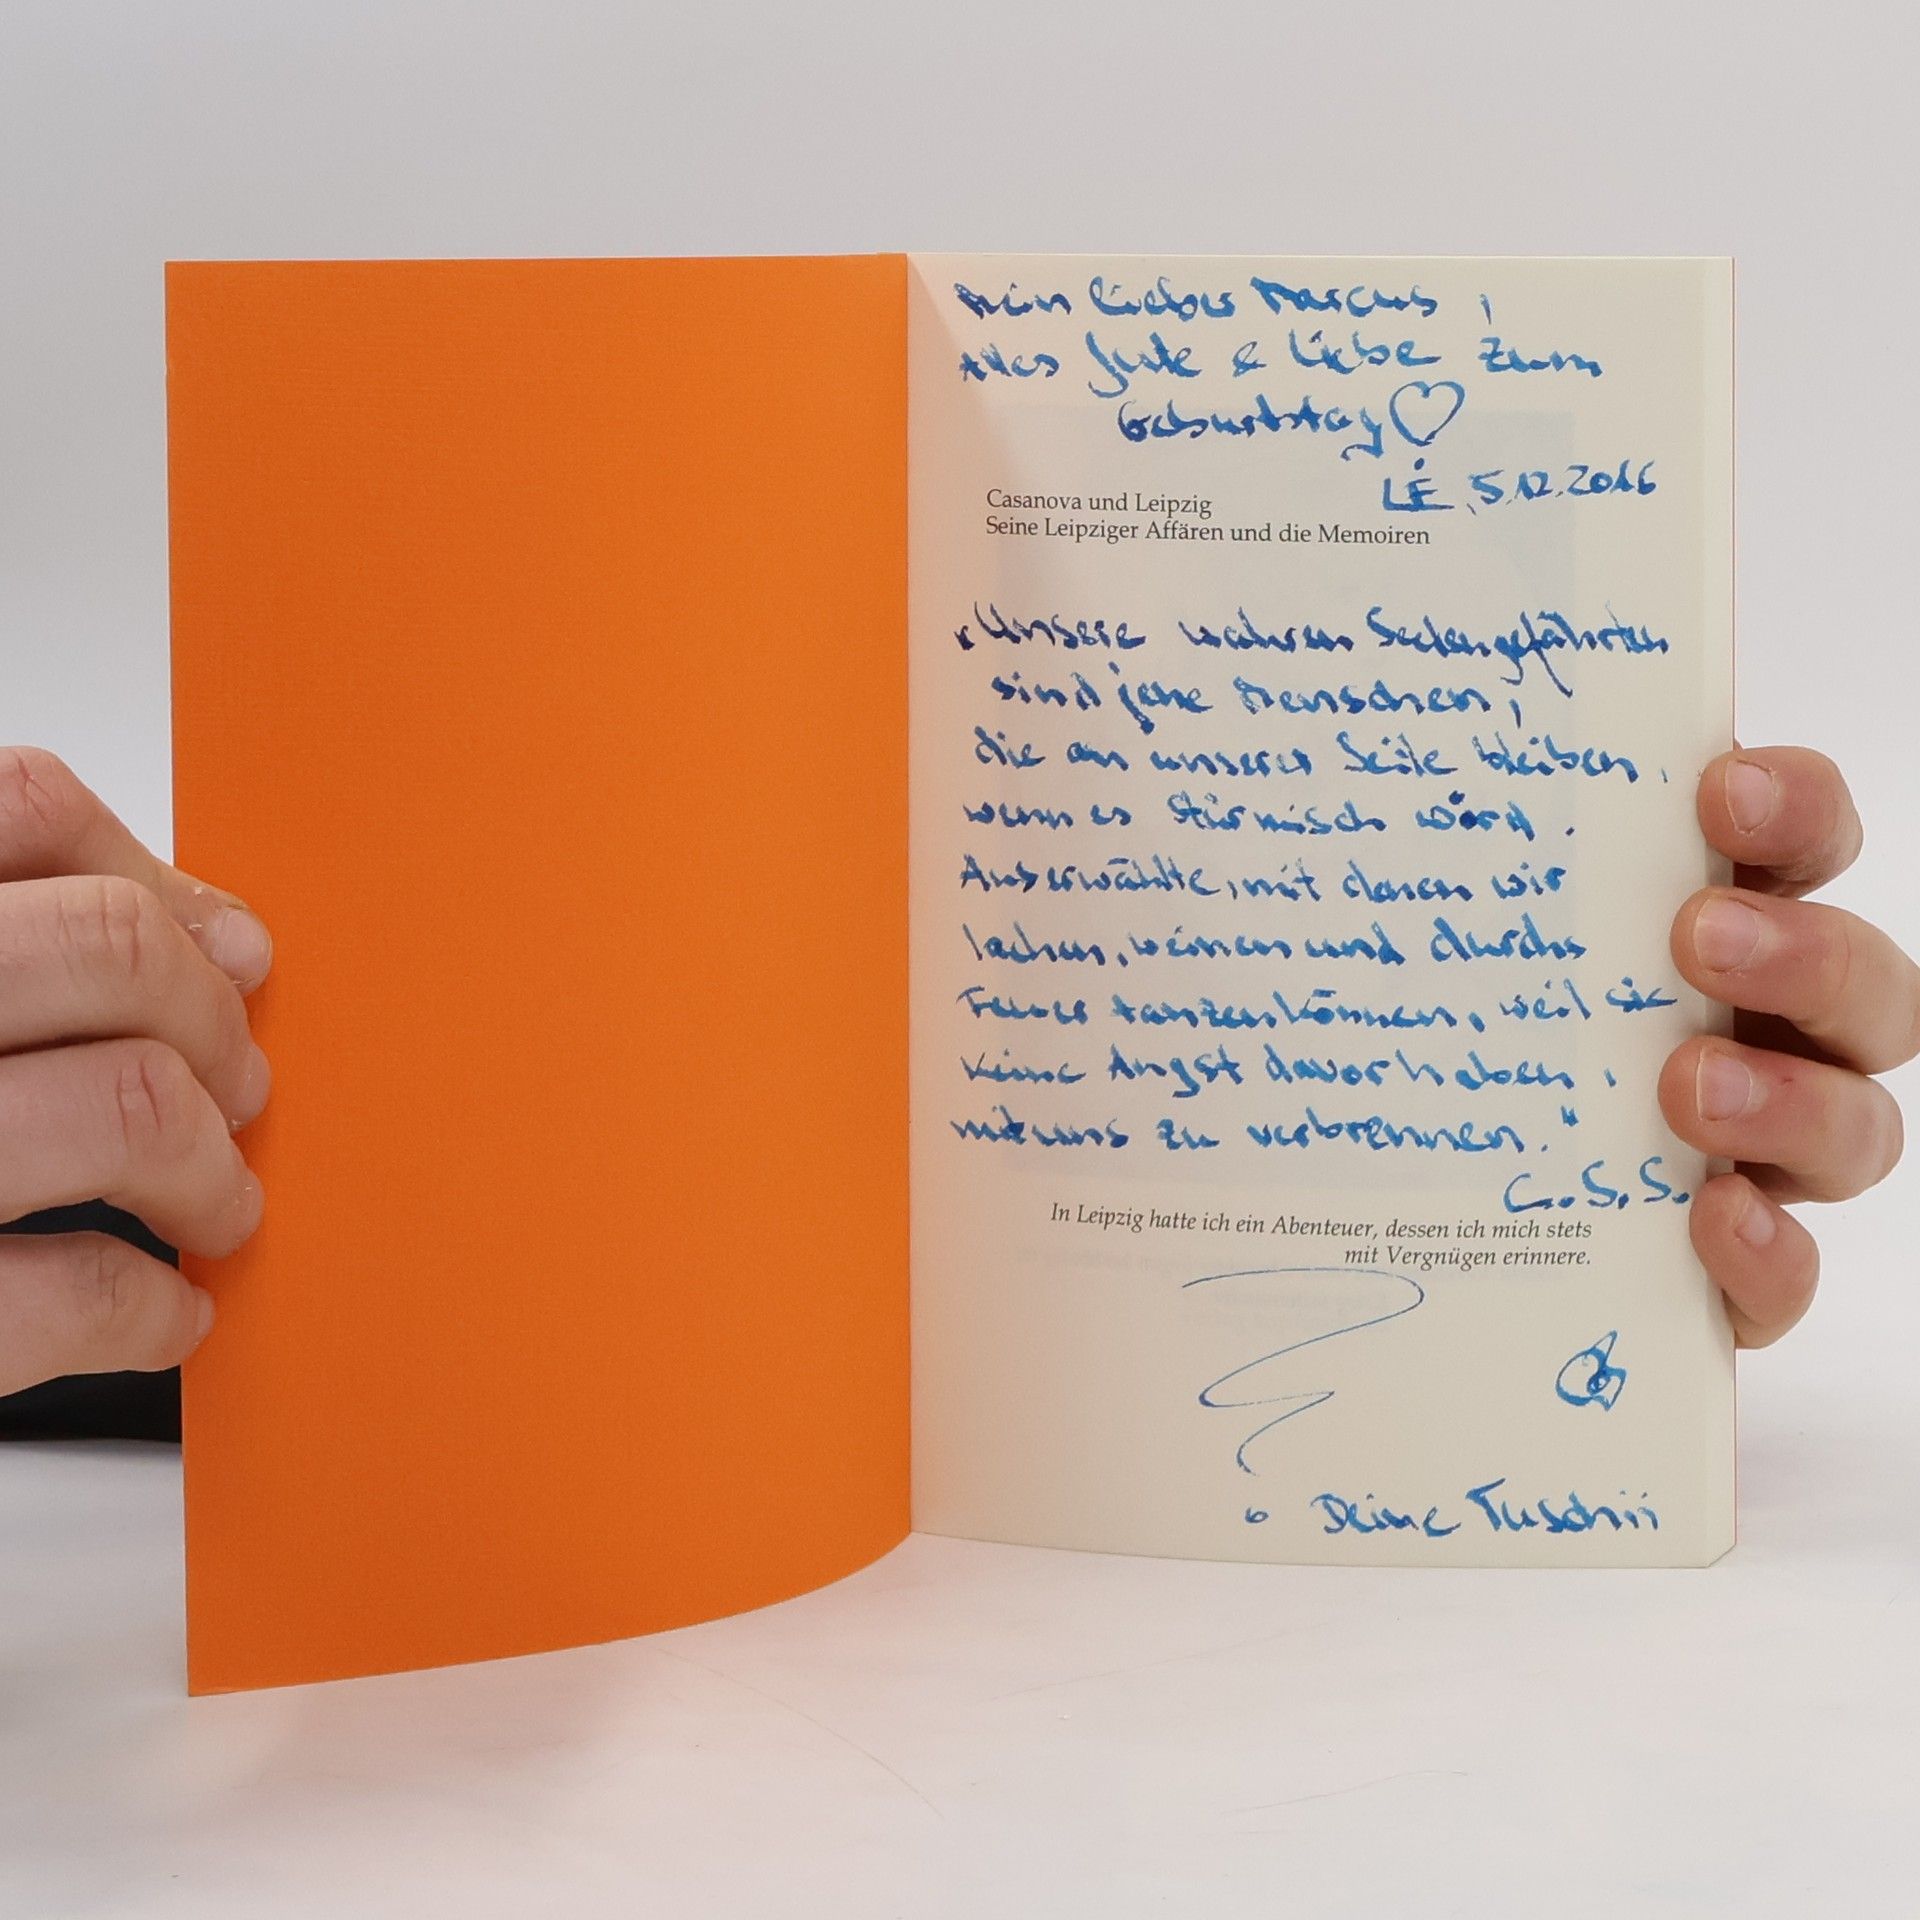 Mein lieber Marcus,
Alles Gute & Liebe zum
Geburtstag ♡
LE, 5.12.2016
Casanova und Leipzig
Seine Leipziger Affären und die Memoiren
„Unsere wahren Seelengefährten
sind jene Menschen,
die an unserer Seite bleiben,
wenn es stürmisch wird.
Auserwählte, mit denen wir
lachen, weinen und durchs
Feuer tanzen können, weil sie
keine Angst davor haben,
mit uns zu verbrennen.“
C.S.S.
In Leipzig hatte ich ein Abenteuer, dessen ich mich stets
mit Vergnügen erinnere.
Deine Tuschii